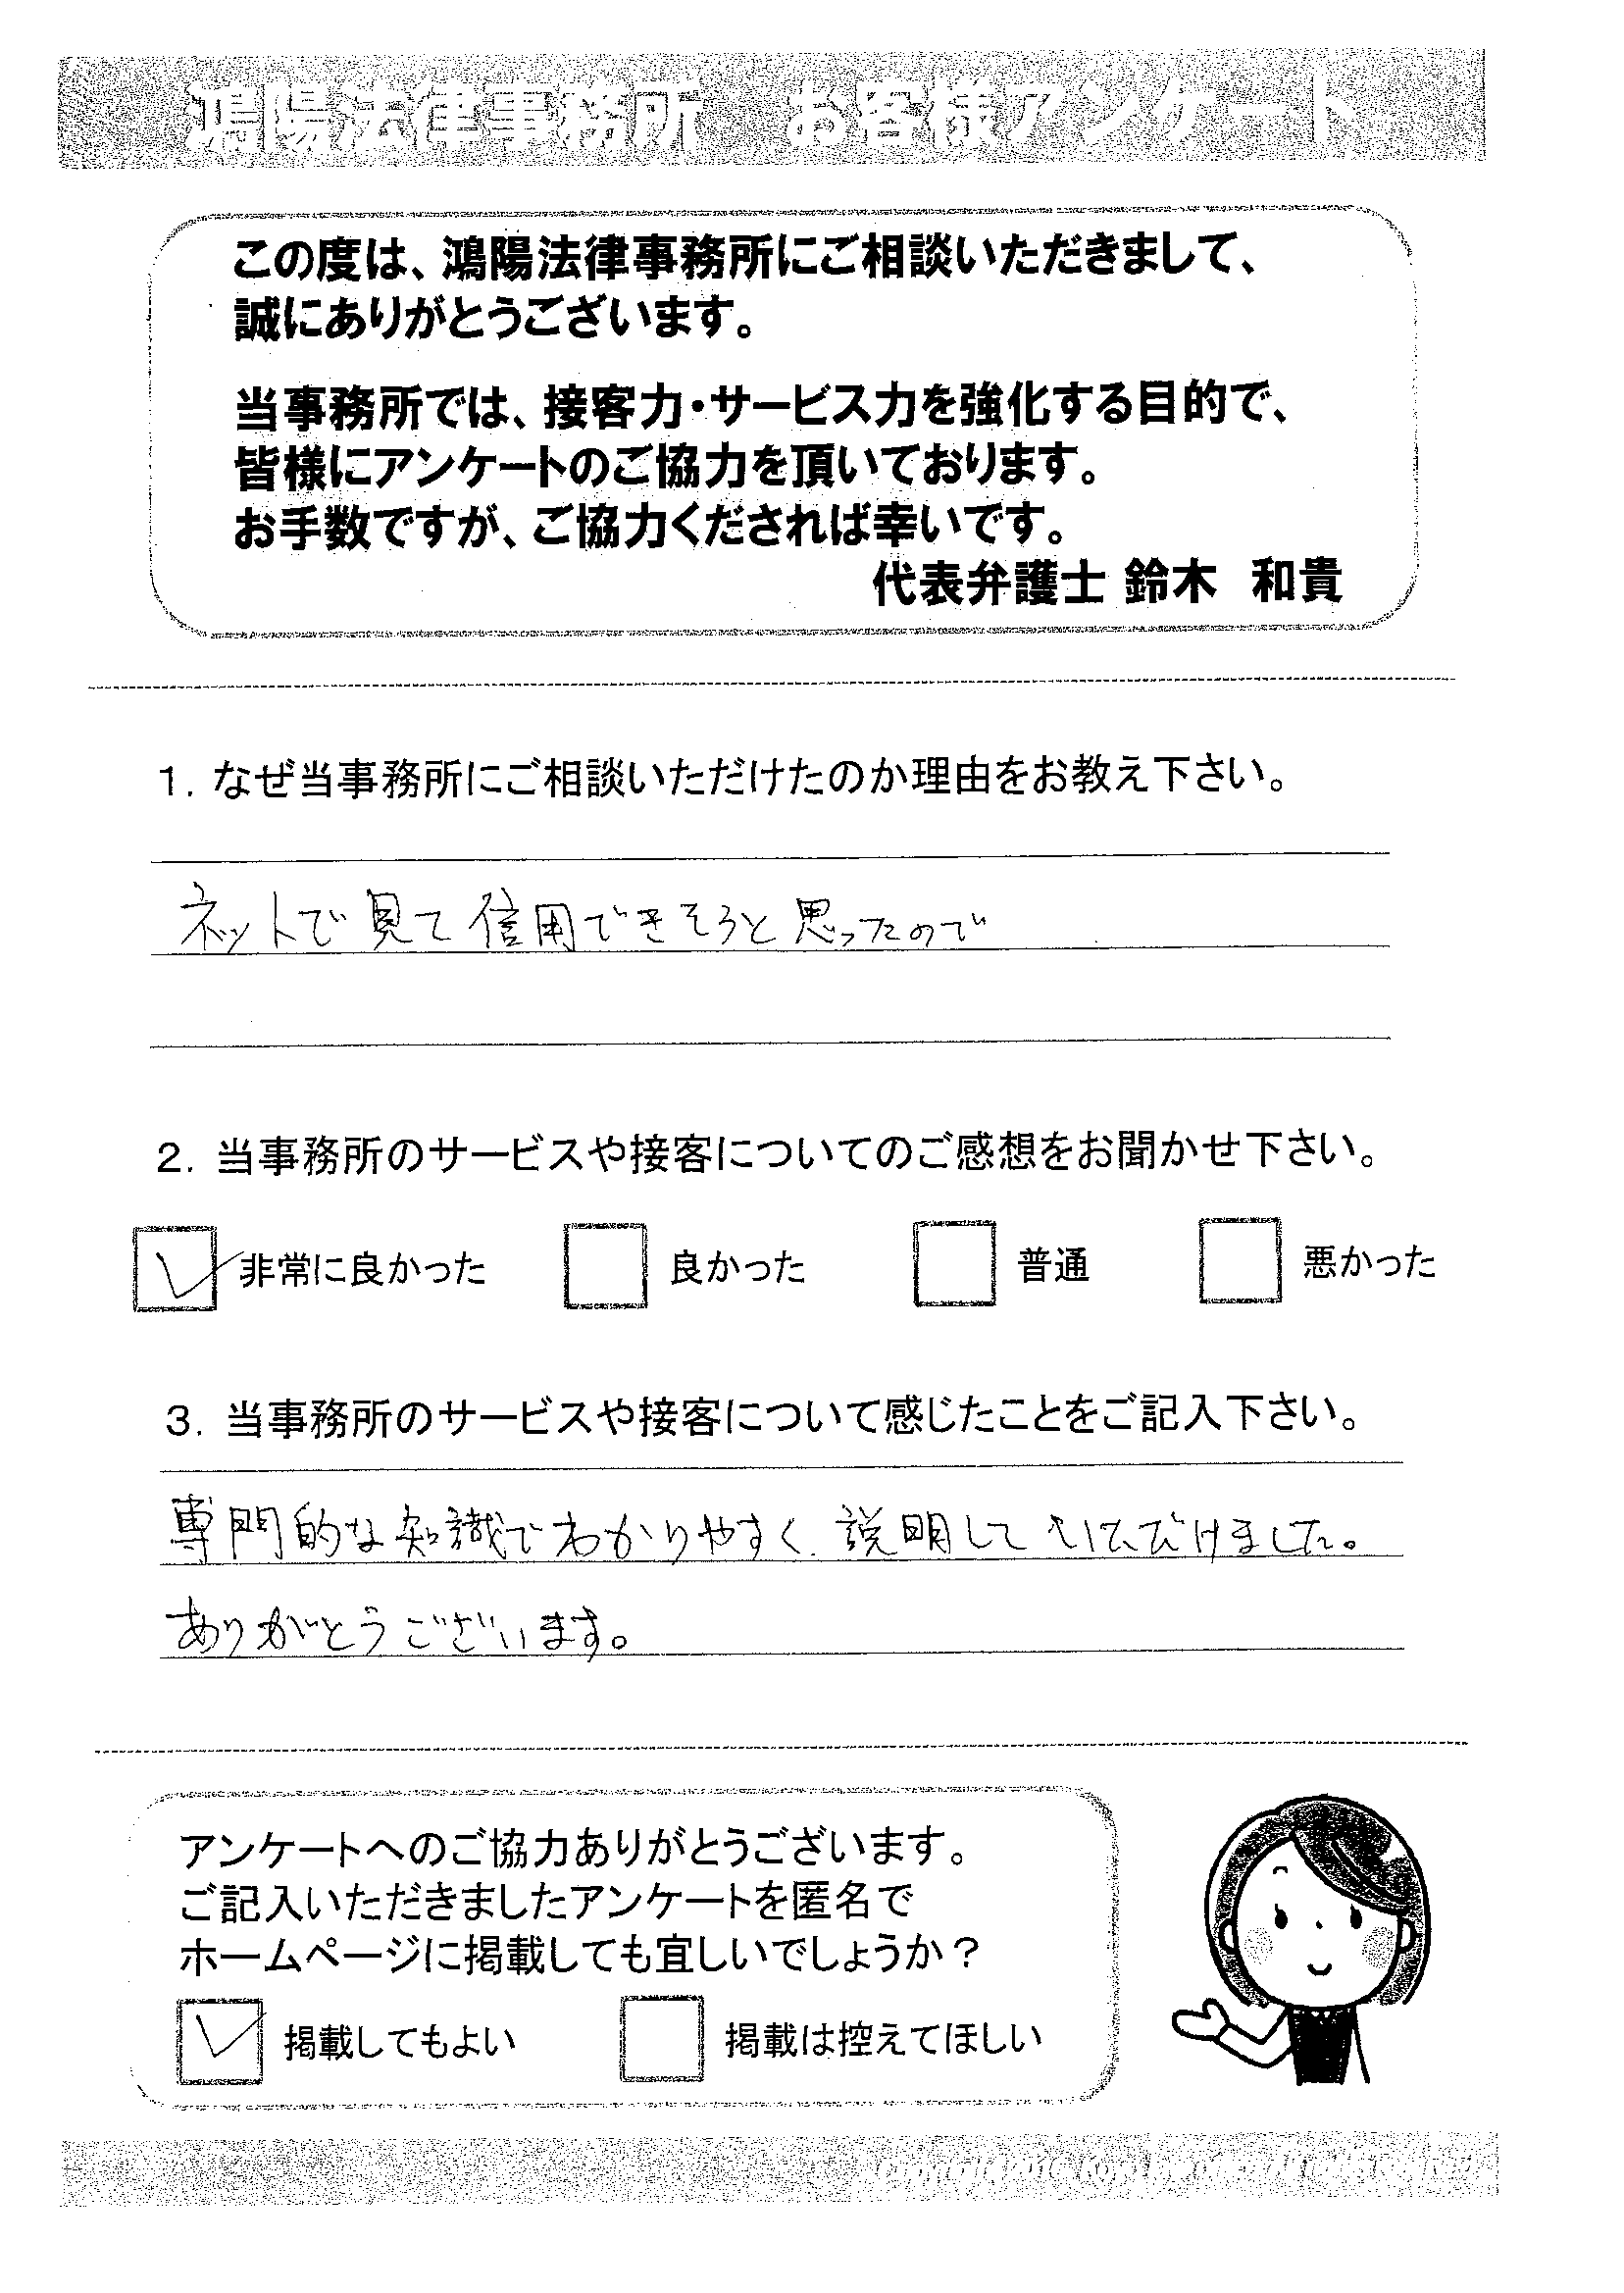 鴻陽法律事務所　お客様アンケート
この度は、鴻陽法律事務所にご相談いただきまして、
誠にありがとうございます。
当事務所では、接客力・サービス力を強化する目的で、
皆様にアンケートのご協力を頂いております。
お手数ですが、ご協力くだされば幸いです。
代表弁護士 鈴木　和貴
1. なぜ当事務所にご相談いただけたのか理由をお教え下さい。
ネットで見て信用できそうと思ったので
2. 当事務所のサービスや接客についてのご感想をお聞かせ下さい。
非常に良かった　良かった　普通　悪かった
3. 当事務所のサービスや接客について感じたことをご記入下さい。
専門的な知識でわかりやすく説明していただけました。
ありがとうございます。
アンケートへのご協力ありがとうございます。
ご記入いただきましたアンケートを匿名で
ホームページに掲載しても宜しいでしょうか？
掲載してもよい　掲載は控えてほしい